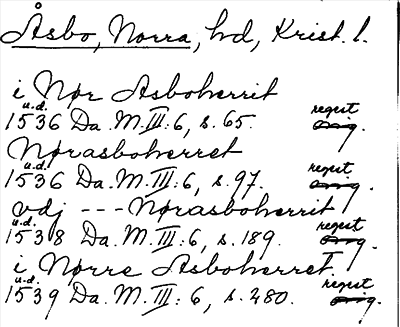 Åsbo, Norra, hd, Krist. l.
i Nør Asboherrit
u.d. regest
1536 Da. M. III: 6, s. 65. orig.
Nørasboherret
u.d. regest
1536 Da. M. III: 6, s. 97. orig.
vdj --- Nørasboherrit
u.d. regest
1538 Da. M. III: 6, s. 189. orig.
i Nørre Asboherret
u.d. regest
1539 Da. M. III: 6, s. 280. orig.